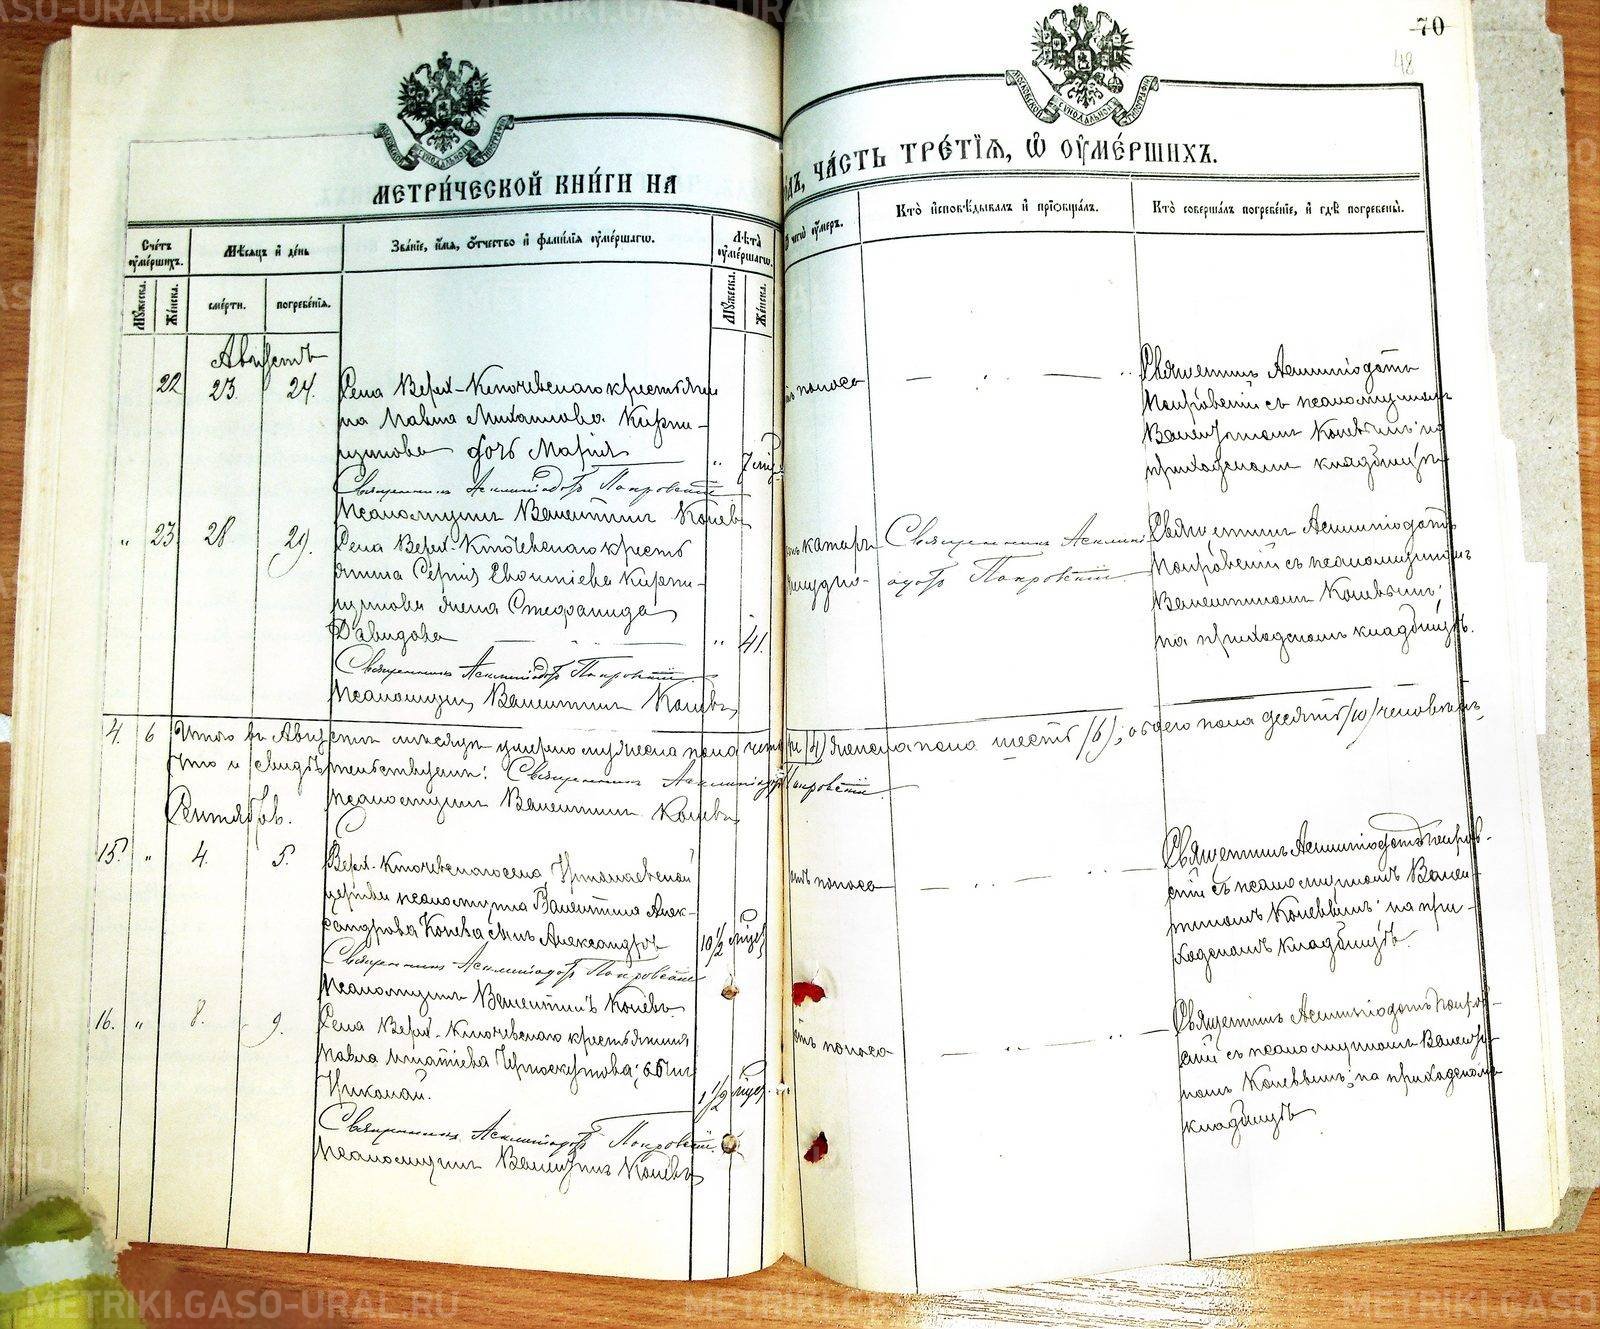 METRIKI.GASO-URAL.RU
70
48
МЕТРИ́ЧЕСКОЙ КНИ́ГИ НА
ЧА́СТЬ ТРЕ́ТІѦ, Ѡ ОУМЕ́РШИХЪ.
Сче́тъ оуме́ршихъ.
Мѣсяцъ и день
Зва́нїе, и́мѧ, о́тчество и фами́лїѧ оуме́ршагѡ.
Лѣта оуме́ршагѡ.
чегѡ̀ оу́меръ.
Кто̀ и҆сповѣ́дывалъ и҆ прїѡбща́лъ.
Кто̀ соверша́лъ погребе́нїе, и҆ гдѣ̀ погребены̀.
Мꙋ́жеска.
Же́нска.
сме́рти.
погребе́нїѧ.
Мꙋ́жеска.
Же́нска.
Августъ
22 23. 24. Села Верх-Ключевскаго крестьяни
на Павла Михаилова Кирпи-
щикова дочь Марія " 7 мѣс.
Священникъ Асклипіодотъ Покровскій
Псаломщикъ Валентинъ Коневъ
поноса
Священникъ Асклипіодотъ
Покровскій съ псаломщикомъ
Валентиномъ Коневымъ: на
приходскомъ кладбищѣ
" 23 28 29. Села Верх-Ключевскаго кресть
янина Сергія Евфиміева Кирпи-
щикова жена Стефанида
Давидова " 41.
Священникъ Асклипіодотъ Покровскій
Псаломщикъ Валентинъ Коневъ
катарр
желудка
Священникъ Асклипі
одотъ Покровскій.
Священникъ Асклипіодотъ
Покровскій съ псаломщикомъ
Валентиномъ Коневымъ:
на приходскомъ кладбищѣ.
4. 6 Итого въ Августѣ мѣсяцѣ умерло мужеска пола четыре (4) женска пола шесть (6), обоего пола десять (10) человѣкъ,
Что и свидѣтельствуемъ: Священникъ Асклипіодотъ Покровскій
Псаломщикъ Валентинъ Коневъ
Сентябрь.
15. " 4. 5. Верх-Ключевскаго села Николаевской
церкви псаломщика Валентина Алек-
сандрова Конева сынъ Александръ 10 1/2 мѣс.
Священникъ Асклипіодотъ Покровскій
Псаломщикъ Валентинъ Коневъ
поноса
Священникъ Асклипіодотъ Покров-
скій съ псаломщикомъ Вален-
тиномъ Коневымъ: на при-
ходскомъ кладбищѣ.
16. " 8. 9. Села Верх-Ключевскаго крестьянина
Павла Игнатіева Черноскутова; сынъ
Николай. 1 1/2 мѣс.
Священникъ Асклипіодотъ Покровскій
Псаломщикъ Валентинъ Коневъ
отъ поноса
Священникъ Асклипіодотъ Покров-
скій съ псаломщикомъ Валенти-
номъ Коневымъ: на приходскомъ
кладбищѣ
METRIKI.GASO-URAL.RU
METRIKI.GASO-URAL.RU